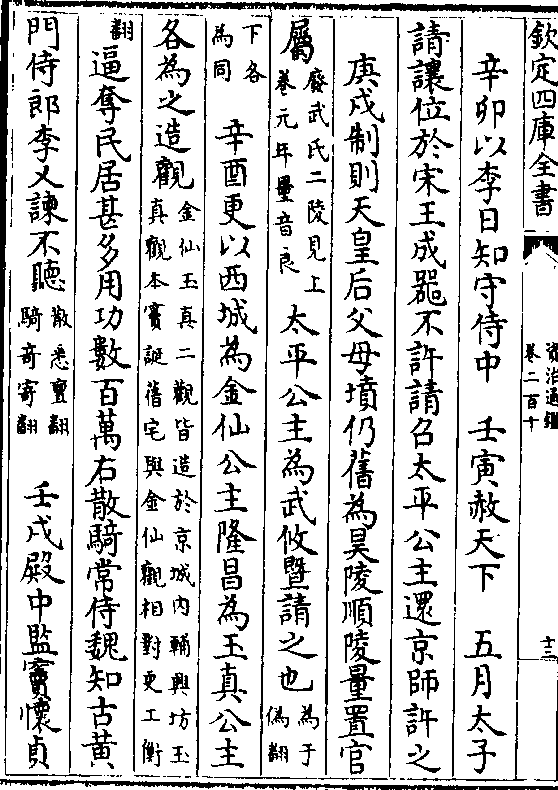 欽定四庫全書
資治通鑑
卷二百十
十三
辛卯以李日知守侍中　壬寅赦天下　五月太子
請讓位於宋王成器不許請召太平公主還京師許之
庚戌制則天皇后父母墳仍舊為昊陵順陵量置官
屬廢武氏二陵見上卷元年量音良　太平公主為武攸暨請之也為于偽翻
下各為同　辛酉更以西城為金仙公主隆昌為玉真公主
各為之造觀金仙玉真二觀皆造於京城內輔興坊玉真觀本竇誕舊宅與金仙觀相對更工衡
翻逼奪民居甚多用功數百萬右散騎常侍魏知古黄
門侍郎李乂諫不聽散悉亶翻騎奇寄翻　壬戌殿中監竇懷貞